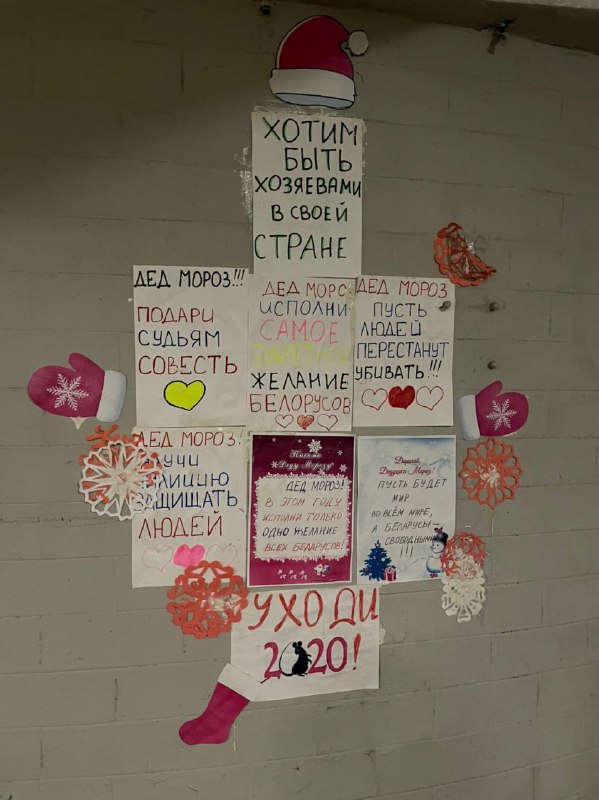 ХОТИМ
БЫТЬ
ХОЗЯЕВАМИ
В СВОЕЙ
СТРАНЕ
ДЕД МОРОЗ!!!
ПОДАРИ
СУДЬЯМ
СОВЕСТЬ
ДЕД МОРОЗ
ИСПОЛНИ
САМОЕ
ЖЕЛАНИЕ
БЕЛОРУСОВ
ДЕД МОРОЗ
ПУСТЬ
ЛЮДЕЙ
ПЕРЕСТАНУТ
УБИВАТЬ!!!
ДЕД МОРОЗ!
ЗАЩИЩАТЬ
ЛЮДЕЙ
Письмо
Деду Морозу!
ДЕД МОРОЗ!
В ЭТОМ ГОДУ
ИСПОЛНИ ТОЛЬКО
ОДНО ЖЕЛАНИЕ
ВСЕХ БЕЛАРУСОВ!
Дорогой,
Дедушка Мороз!
ПУСТЬ БУДЕТ
МИР
ВО ВСЁМ МИРЕ,
А БЕЛАРУСЫ –
СВОБОДНЫМИ
!!!
УХОДИ
2020!